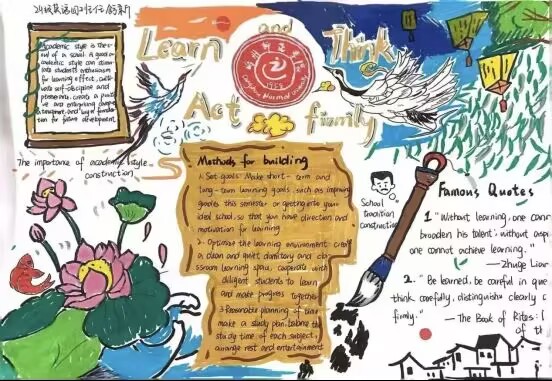 Learn and Think
Act firmly
Academic style is the
soul of a school. A good ac-
ademic style can stim-
ulate students' enthusiasm
for learning effect, culti-
vate self-discipline and
and lay a
for future development.
The importance of academic style
construction
Methods for building
1. Set goals: Make short-term and
long-term learning goals, such as improving
grades this semester or getting into your
ideal school, so that you have direction and
motivation for learning
2. Optimize the learning environment: create
a clean and quiet dormitory and cla-
ssroom learning space, cooperate with
diligent students to learn
and make progress together
3. Reasonable planning of time:
make a study plan, balance the
study time of each subject,
arrange rest and entertainment
School
tradition
construction
Famous Quotes
1. "Without learning, one cann
broaden his talent; without aspi
one cannot achieve learning."
— Zhuge Lian
2. "Be learned, be careful in que
think carefully, distinguish clearly
firmly."
— The Book of Rites: l
of th